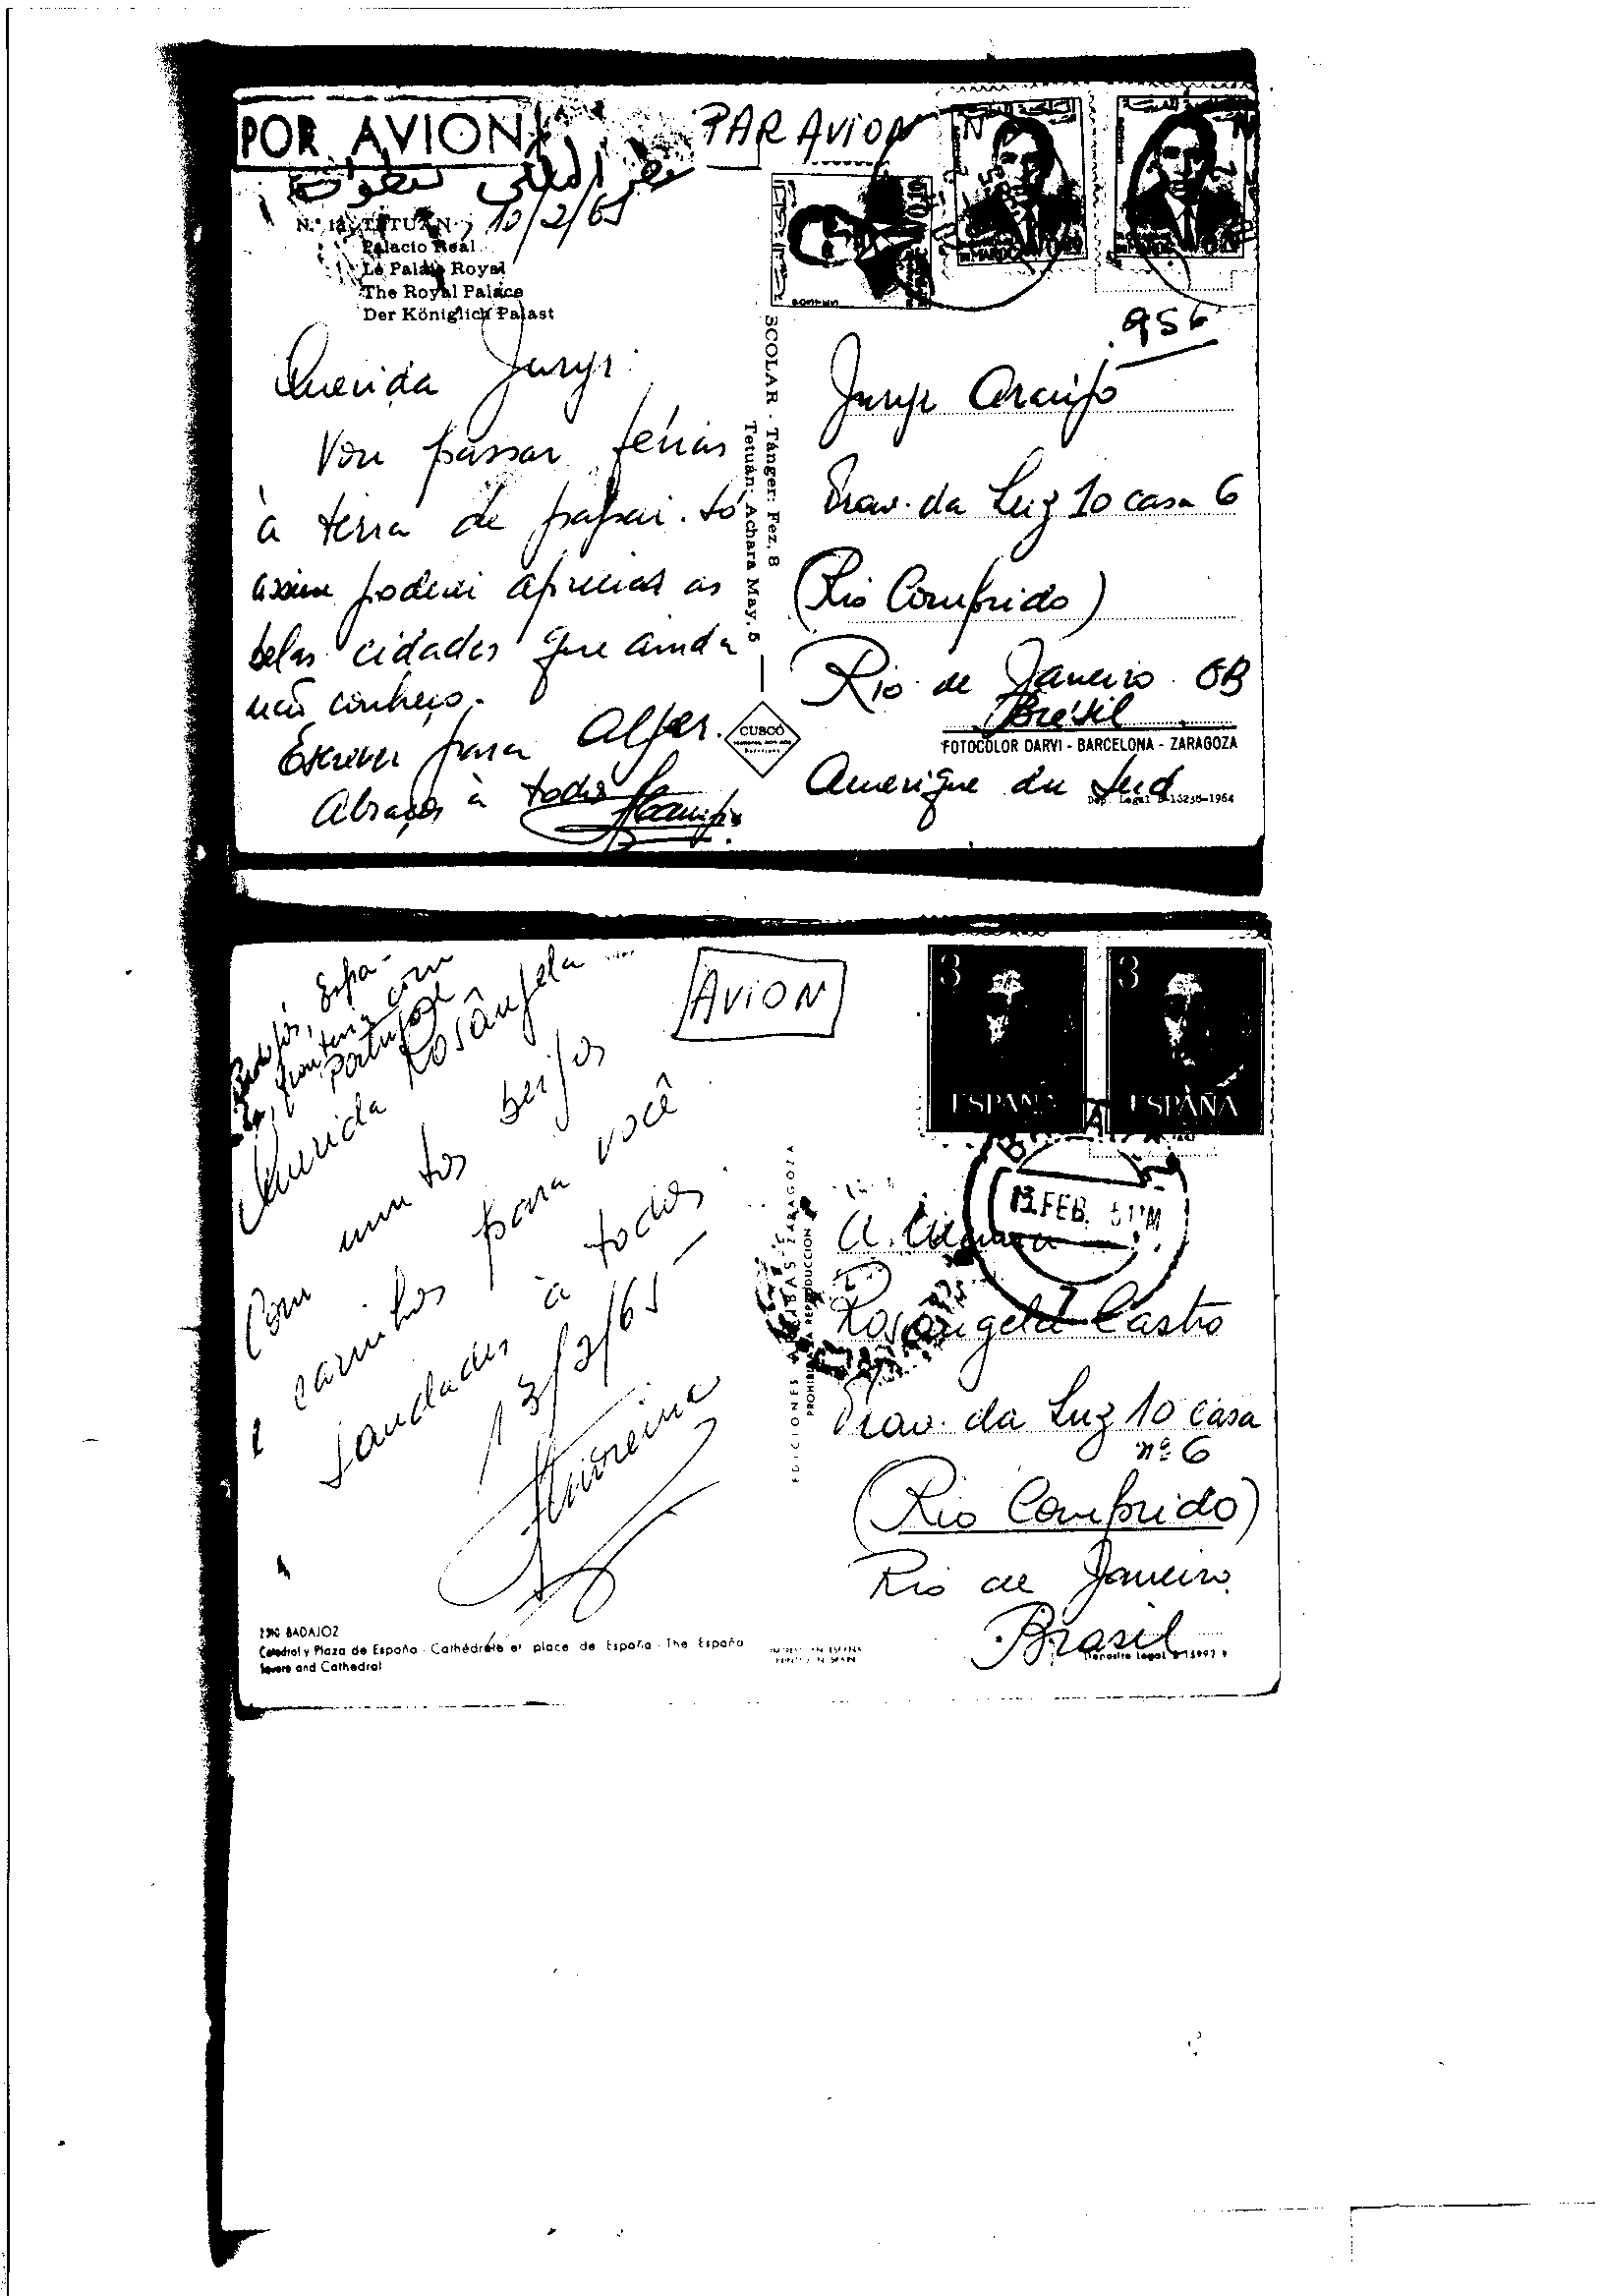 POR AVION
PAR AVION
القصر الملكي تطوان
TETUAN
10/2/65
Palacio Real
Le Palais Royal
The Royal Palace
Der Königlich Palast
956
Querida Juryr:
Vou passar férias
à terra de papai. Só
assim poderei apreciar as
belas cidades que ainda
não conheço.
Escrever para Alger.
Abraços à todos
SCOLAR - Tánger: Fez, 8
Tetuán: Achara May, 5
CUSCÓ
Juryr Araujo
Trav. da Luz 10 casa 6
(Rio Comprido)
Rio de Janeiro. GB
Brésil
FOTOCOLOR DARVI - BARCELONA - ZARAGOZA
Amerique du Sud
Dep. Legal B-13238-1964
Badajós, Espa-
nha, fronteira com
Portugal
AVION
3
3
ESPAÑA
ESPAÑA
Querida Rosângela
Com muitos beijos
e carinhos para você
Saudades à todos
13/2/65
13 FEB.
Rosangela Castro
Trav. da Luz 10 casa
nº 6
(Rio Comprido)
Rio de Janeiro
Brasil
EDICIONES ARRIBAS ZARAGOZA
PROHIBIDA LA REPRODUCCION
BADAJOZ
Catedral y Plaza de España - Cathédrale et place de España - The España
Square and Cathedral
IMPRESO EN ESPAÑA
PRINTED IN SPAIN